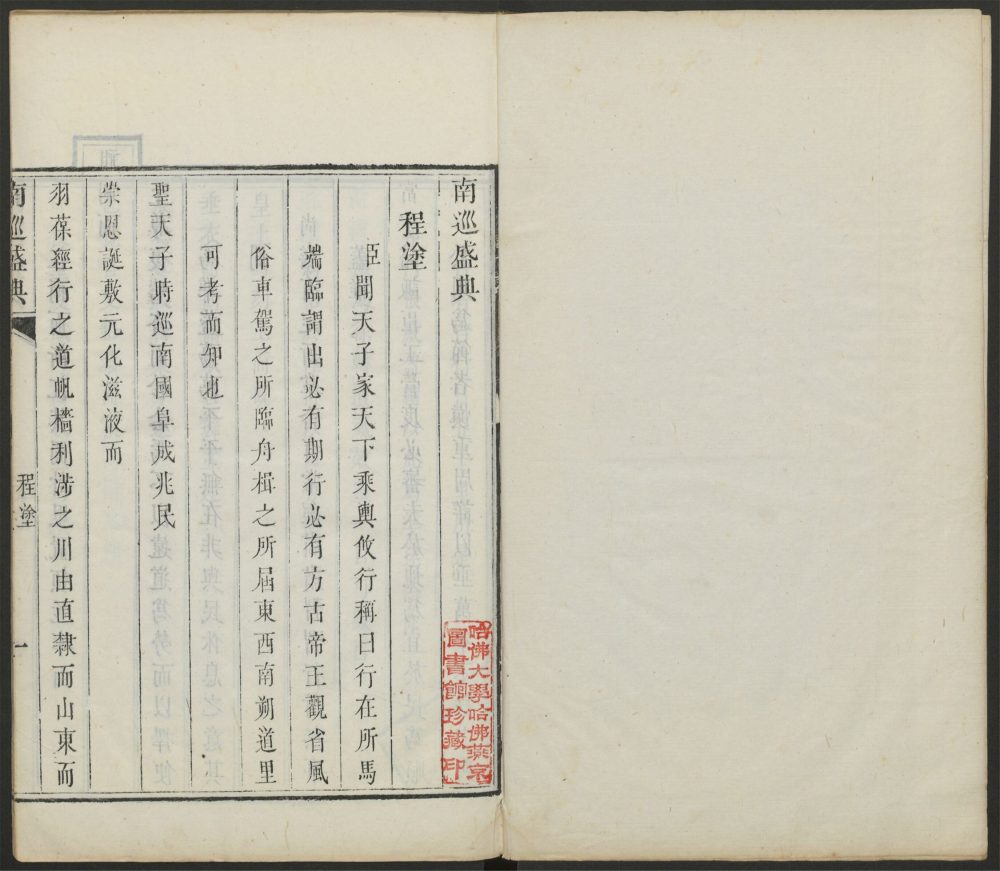 南巡盛典
程塗
臣聞天子家天下乘輿攸行稱曰行在所馬
端臨謂出必有期行必有方古帝王觀省風
俗車駕之所臨舟楫之所屆東西南朔道里
可考而知也
聖天子時巡南國阜成兆民
崇恩誕敷元化滋液而
羽葆經行之道帆檣利涉之川由直隸而山東而
南巡盛典
程塗
一
哈佛大學哈佛燕京
圖書館珍藏印